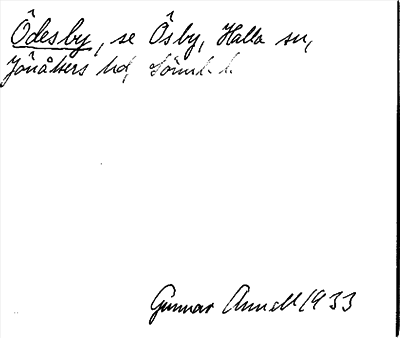 Ödesby, se Ösby, Halla sn,
Jönåkers hd,
Gunnar Annell 1933